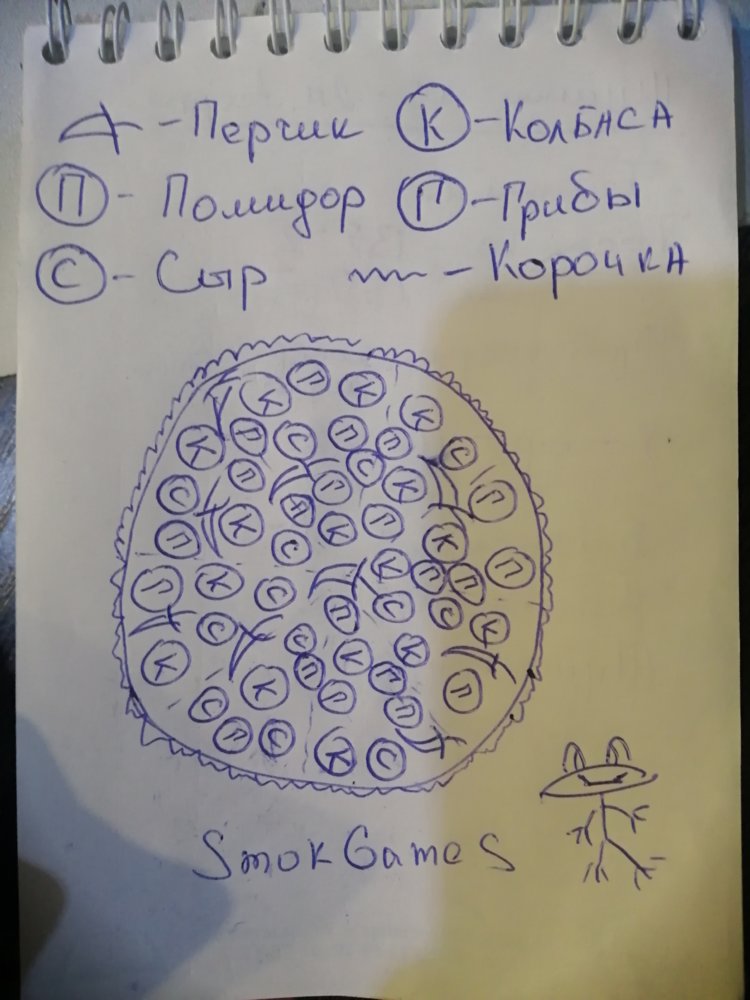 - Перчик К - Колбаса
П - Помидор Г - Грибы
С - Сыр - Корочка
П К
К К
К П С П П С
П С К
С П П П
П К К П К
С
К П П П
П К С
П С С К
С
С К К
К П П
К П П
С П
П С К С
SmokGames